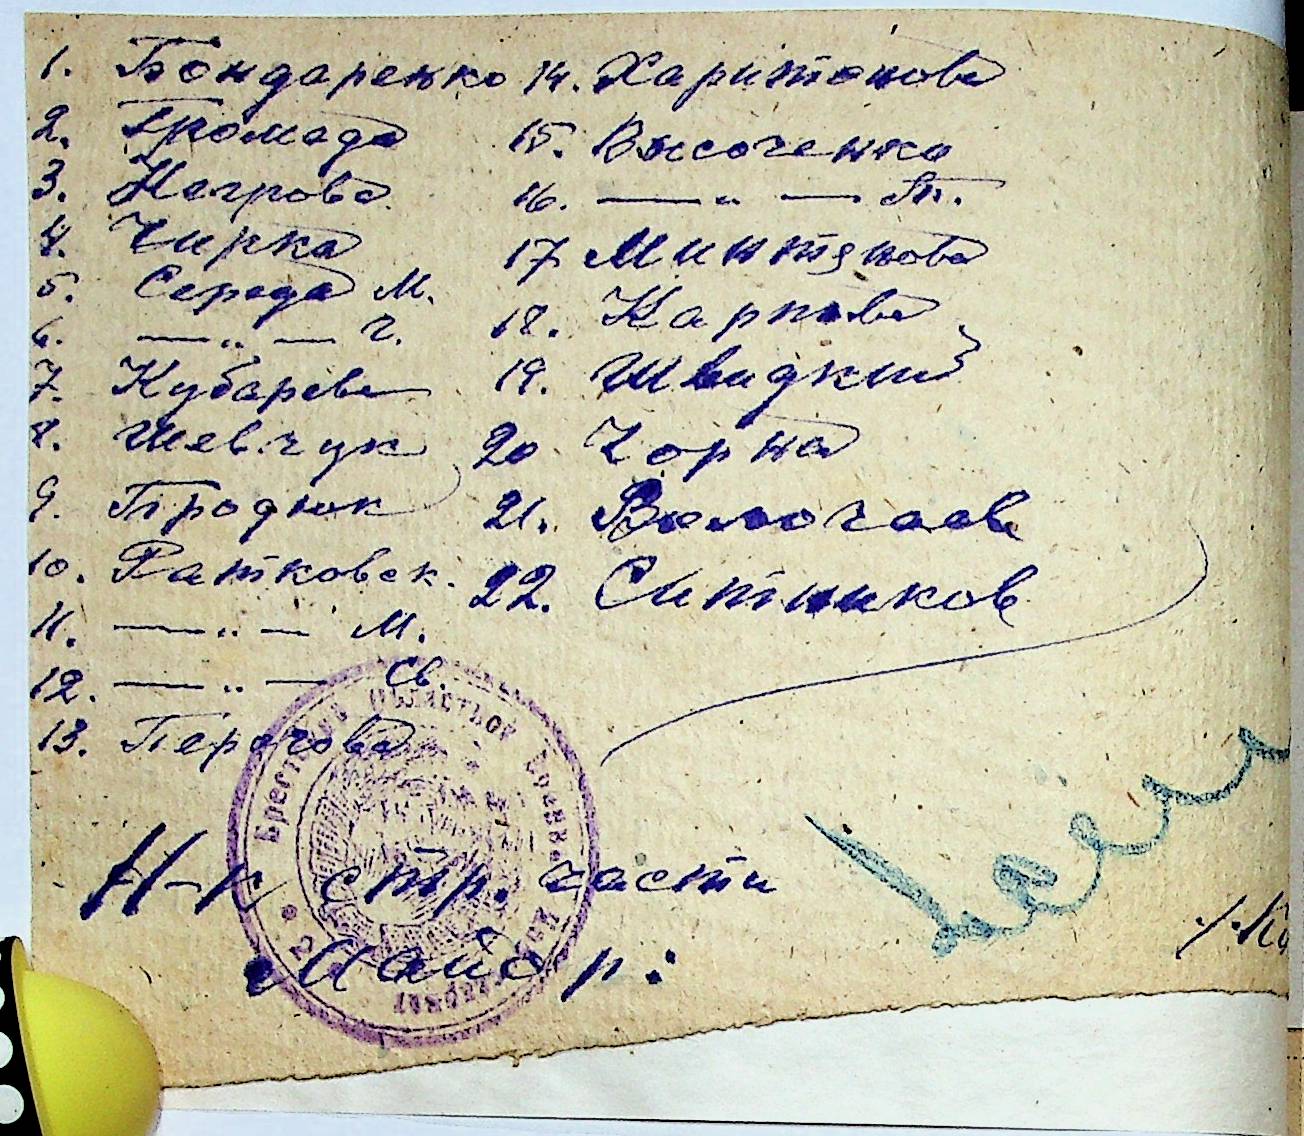 1. Бондаренко
2. Громада
3. Негрова
4. Чирка
5. Середа М.
6. —„— Г.
7. Кубарева
8. Шевчук
9. Продюк
10. Ратковск.
11. —„— М.
12. —„— Св.
13. Перогова
14. Харитонова
15. Высоченко
16. —„— П.
17 Минтянова
18. Карпова
19. Швидкий
20 Чорна
21. Волочаев
22. Ситников
Н-к стр. части
Майор:
Брест Областной Военно